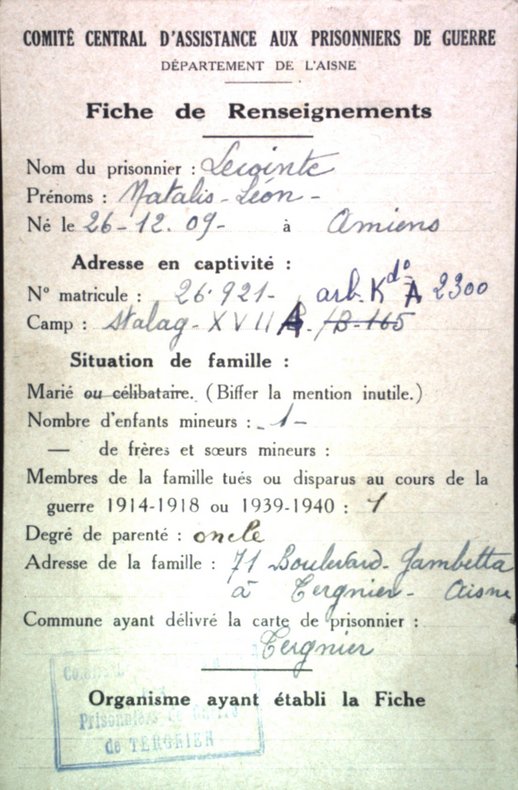 COMITÉ CENTRAL D'ASSISTANCE AUX PRISONNIERS DE GUERRE
DÉPARTEMENT DE L'AISNE
Fiche de Renseignements
Nom du prisonnier : Lecointe
Prénoms : Natalis - Léon -
Né le 26-12.09- à Amiens
Adresse en captivité :
N° matricule : 26.921- arb. Kdo A 2300
Camp : Stalag - XVII A. /B-165
Situation de famille :
Marié ou célibataire. (Biffer la mention inutile.)
Nombre d'enfants mineurs : -1-
— de frères et sœurs mineurs :
Membres de la famille tués ou disparus au cours de la
guerre 1914-1918 ou 1939-1940 : 1
Degré de parenté : oncle
Adresse de la famille : 71 Boulevard - Gambetta
à Tergnier - Aisne
Commune ayant délivré la carte de prisonnier :
Tergnier
Organisme ayant établi la Fiche
Prisonniers de Guerre
de TERGNIER